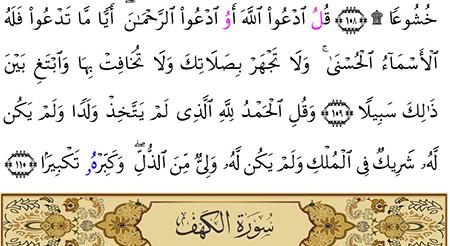 خُشُوعًا ۩ ١٠٨ قُلُ ٱدْعُوا۟ ٱللَّهَ أَوُ ٱدْعُوا۟ ٱلرَّحْمَٰنَۖ أَيًّا مَّا تَدْعُوا۟ فَلَهُ
ٱلْأَسْمَآءُ ٱلْحُسْنَىٰۚ وَلَا تَجْهَرْ بِصَلَاتِكَ وَلَا تُخَافِتْ بِهَا وَٱبْتَغِ بَيْنَ
ذَٰلِكَ سَبِيلًا ١٠٩ وَقُلِ ٱلْحَمْدُ لِلَّهِ ٱلَّذِى لَمْ يَتَّخِذْ وَلَدًا وَلَمْ يَكُن
لَّهُۥ شَرِيكٌ فِى ٱلْمُلْكِ وَلَمْ يَكُن لَّهُۥ وَلِىٌّ مِّنَ ٱلذُّلِّۖ وَكَبِّرْهُۥ تَكْبِيرًا ١١٠
سُورَةُ الكَهْفِ